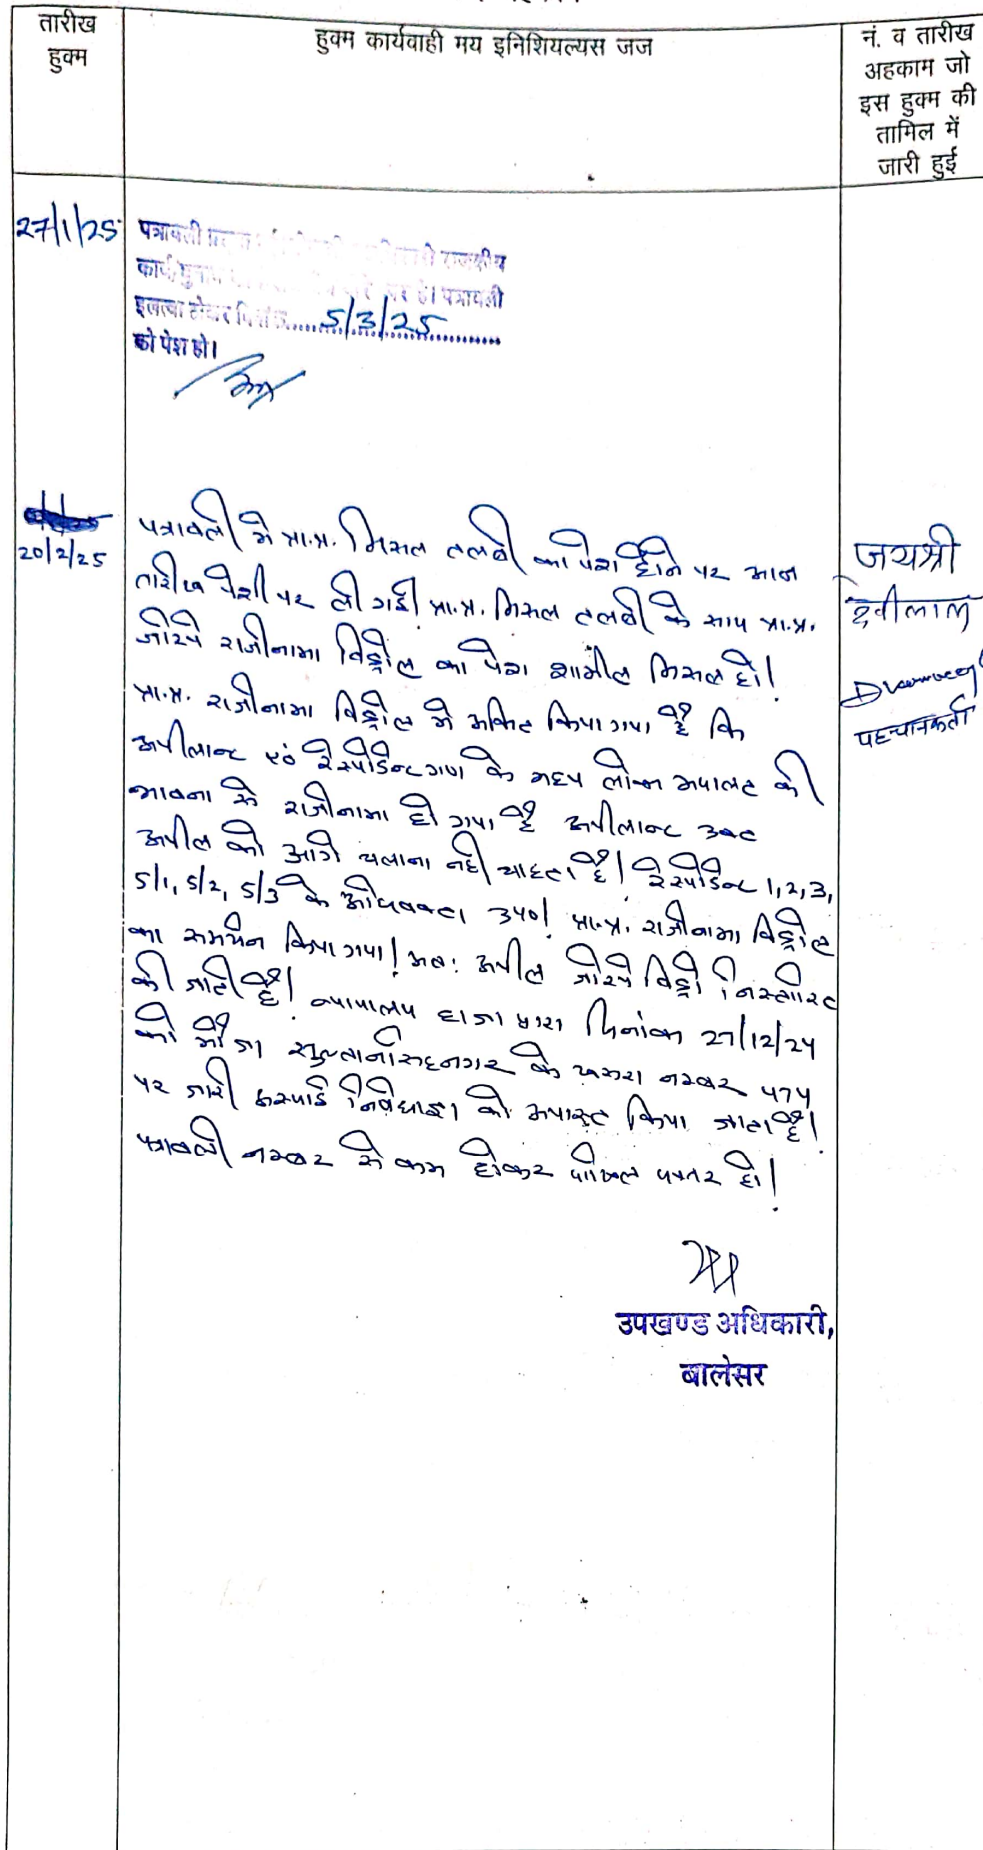 तारीख
हुक्म
हुक्म कार्यवाही मय इनिशियल्यस जज
नं. व तारीख
अहकाम जो
इस हुक्म की
तामिल में
जारी हुई
27/1/25
पत्रावली राजकीय
कार्य है। पत्रावली
इलत्वा होकर 5/3/25
को पेश हो।
20/2/25
पत्रावली मे प्रा.प्र. मिसल तलबी का पेश होने पर आज
तारीख पेशी पर ली गई। प्रा.प्र. मिसल तलबी के साथ प्रा.प्र.
जरिये राजीनामा विड्रोल का पेश शामील मिसल हो!
प्रा.प्र. राजीनामा विड्रोल मे अंकित किया गया है कि
अपीलान्ट एवं रेस्पोडेन्टगण के मध्य लोक अदालत की
भावना से राजीनामा हो गया है अपीलान्ट उक्त
अपील को आगे चलाना नही चाहता है। रेस्पोडेन्ट 1,2,3,
5/1, 5/2, 5/3 के अधिवक्ता उप०! प्रा.प्र. राजीनामा विड्रोल
का समर्थन किया गया! अतः अपील जरिये विड्रो निस्तारित
की जाती है! न्यायालय हाजा द्वारा दिनांक 27/12/24
को मौजा सुल्तानसिंहनगर के खसरा नम्बर 474
पर जारी अस्थाई निषेधाज्ञा को अपास्त किया जाता है!
पत्रावली नम्बर से कम होकर दाखिल दफ्तर हो!
जयश्री
देवीलाल
पहचानकर्ता
उपखण्ड अधिकारी,
बालेसर